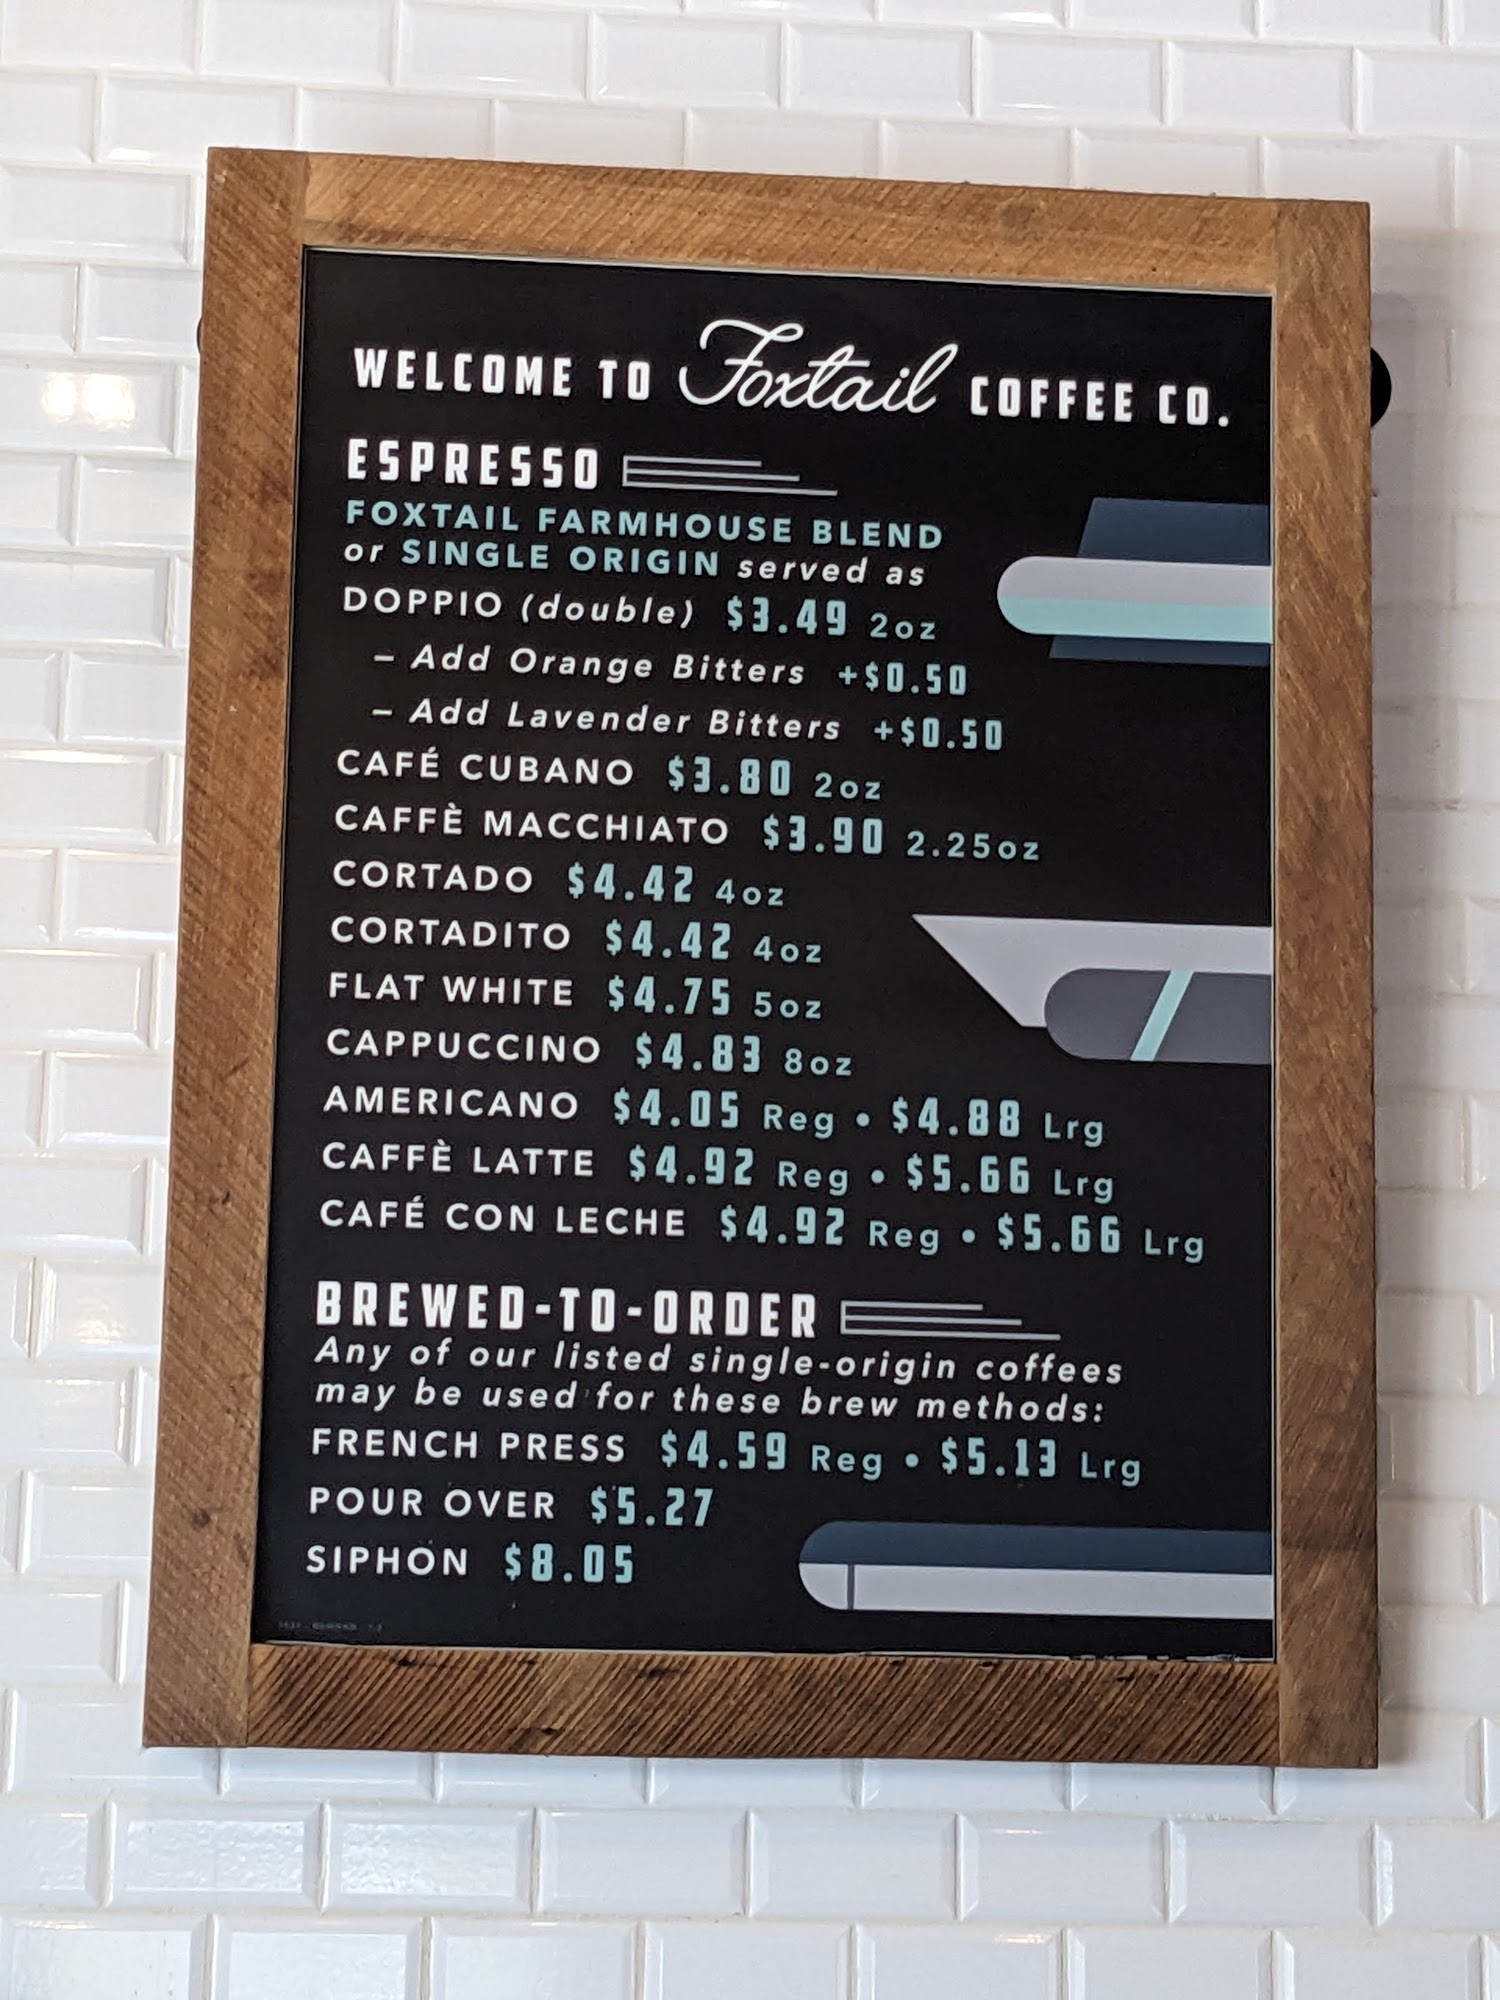 WELCOME TO Foxtail COFFEE CO.
ESPRESSO
FOXTAIL FARMHOUSE BLEND
or SINGLE ORIGIN served as
DOPPIO (double) $3.49 2oz
– Add Orange Bitters +$0.50
– Add Lavender Bitters +$0.50
CAFÉ CUBANO $3.80 2oz
CAFFÈ MACCHIATO $3.90 2.25oz
CORTADO $4.42 4oz
CORTADITO $4.42 4oz
FLAT WHITE $4.75 5oz
CAPPUCCINO $4.83 8oz
AMERICANO $4.05 Reg • $4.88 Lrg
CAFFÈ LATTE $4.92 Reg • $5.66 Lrg
CAFÉ CON LECHE $4.92 Reg • $5.66 Lrg
BREWED-TO-ORDER
Any of our listed single-origin coffees
may be used for these brew methods:
FRENCH PRESS $4.59 Reg • $5.13 Lrg
POUR OVER $5.27
SIPHON $8.05